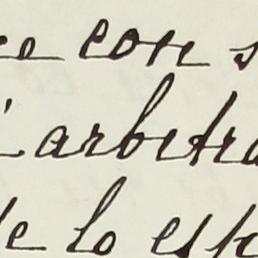 con
arbitra
de lo esp